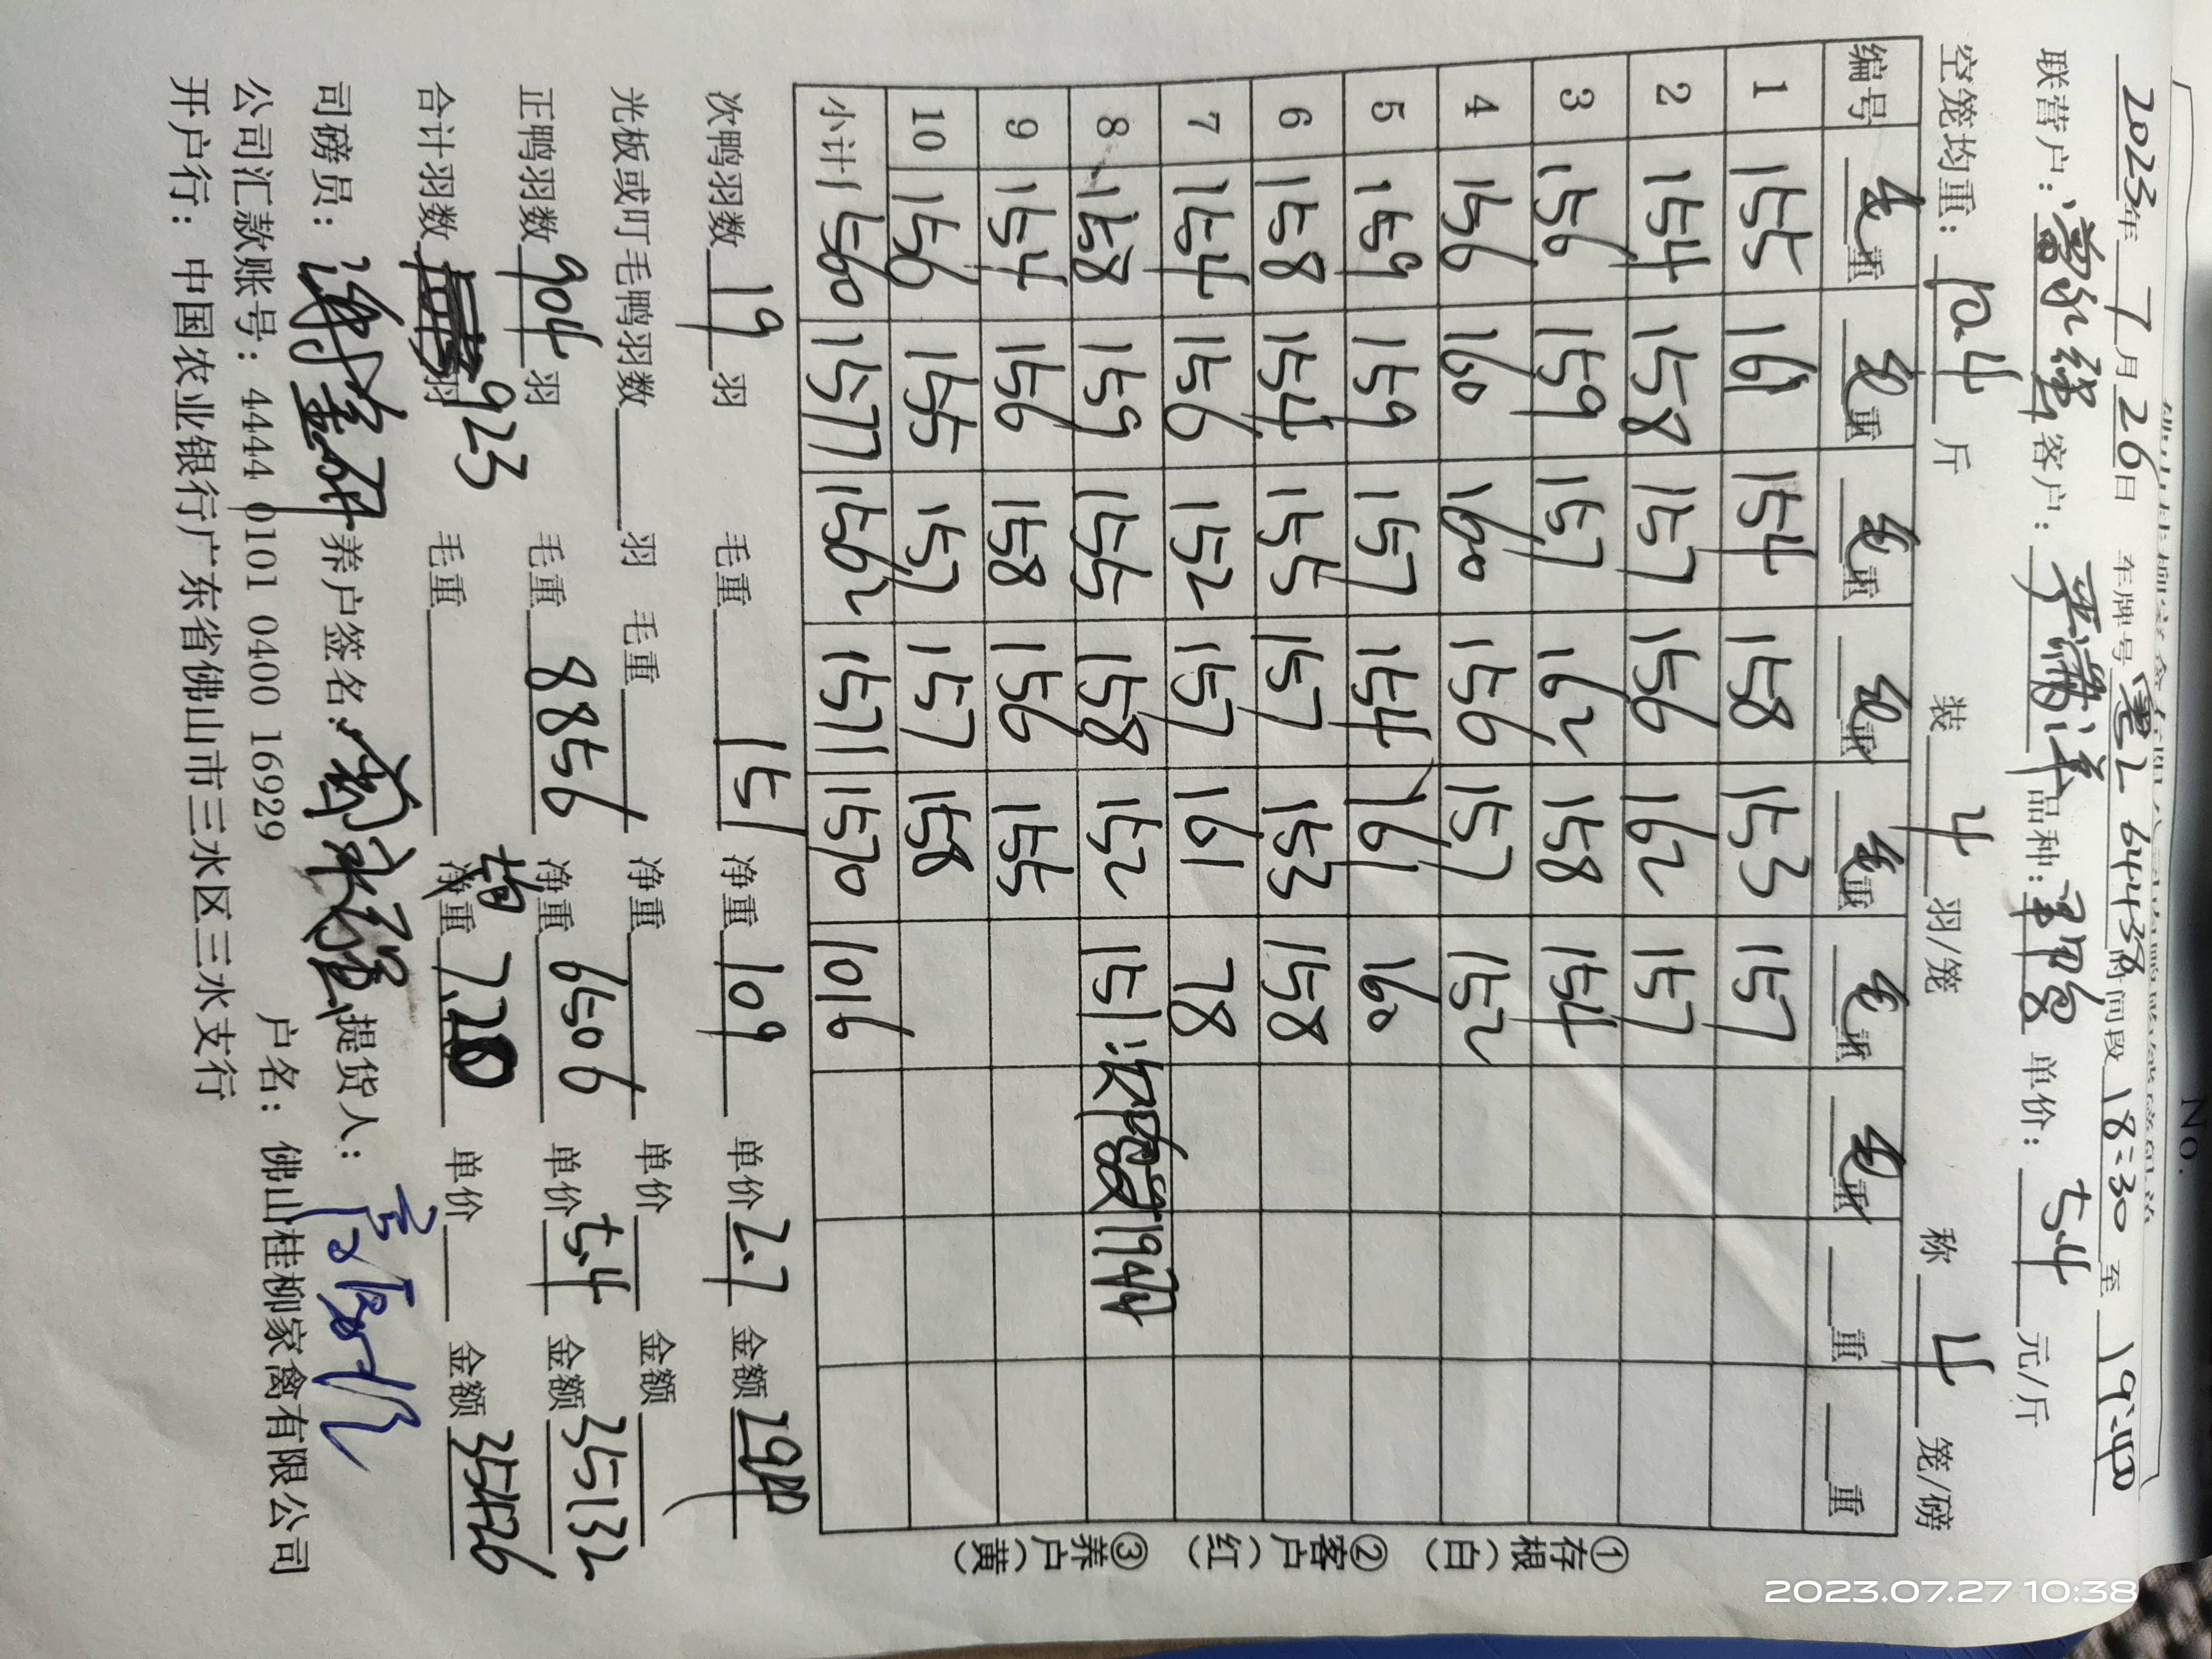 No.
2023年 7月26日 车牌号 粤L 64438 时间段 18:30 至 19:40
联营户: 客户: 品种: 单价: 5.4 元/斤
空笼均重: 10.4 斤 装 4 羽/笼 称 4 笼/磅
编号 毛重 毛重 毛重 毛重 毛重 毛重 毛重 重 重
1 155 161 154 158 153 157
2 154 158 157 156 162 157
3 156 159 157 162 158 154
4 156 160 160 156 157 152
5 159 159 157 154 161 160
6 158 154 155 157 153 158
7 154 156 152 157 161 78
8 158 159 155 158 152 151 次鸭 19羽
9 154 156 158 156 155
10 156 155 157 157 158
小计 1560 1577 1562 1571 1570 1016
①存根(白) ②客户(红) ③养户(黄)
次鸭羽数 19 羽 毛重 151 净重 109 单价 2.7 金额 294
光板或叮毛鸭羽数 羽 毛重 净重 单价 金额
正鸭羽数 904 羽 毛重 8856 净重 6506 单价 5.4 金额 35132
合计羽数 923 羽 毛重 净重 7.20 单价 金额 35426
司磅员: 养户签名: 提货人:
公司汇款账号: 4444 0101 0400 16929 户名: 佛山桂柳家禽有限公司
开户行: 中国农业银行广东省佛山市三水区三水支行
2023.07.27 10:38